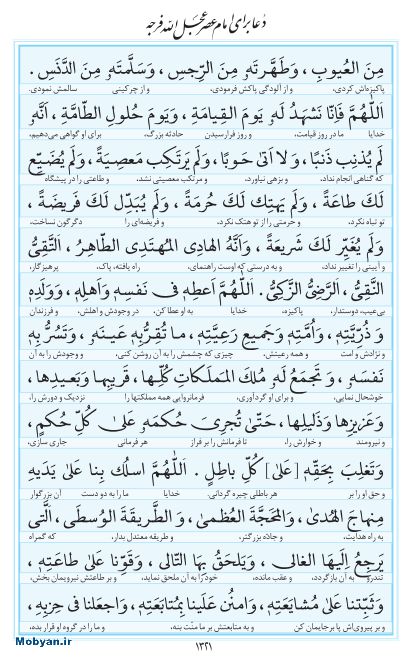 دُعا برای امام عصر عجّل الله فرجه
مِنَ العُيوبِ ، وَطَهَّرتَهُ مِنَ الرِّجسِ ، وَسَلَّمتَهُ مِنَ الدَّنَسِ .
پاکیزه‌اش کردی، و از آلودگی پاکش فرمودی، و از چرکینی سالمش نمودی.
اَللّٰهُمَّ فَاِنّا نَشهَدُ لَهُ يَومَ القِيامَةِ ، وَيَومَ حُلولِ الطّامَّةِ ، اَنَّهُ
خدایا ما در روز قیامت، و روز فرارسیدن حادثه بزرگ، برای او گواهی می‌دهیم،
لَم يُذنِب ذَنبًا ، وَلا اَتىٰ حَوبًا ، وَلَم يَرتَكِب مَعصِيَةً ، وَلَم يُضَيِّع
که گناهی انجام نداد، و بزهی نیاورد، و مرتکب معصیتی نشد، و طاعتی را در پیشگاه
لَكَ طاعَةً ، وَلَم يَهتِك لَكَ حُرمَةً ، وَلَم يُبَدِّل لَكَ فَريضَةً ،
تو تباه نکرد، و حرمتی را از تو هتک نکرد، و فریضه‌ای را دگرگون نساخت،
وَلَم يُغَيِّر لَكَ شَريعَةً ، وَاَنَّهُ الهادِى المُهتَدِى الطّاهِرُ ، التَّقِىُّ
و آیینی را تغییر نداد، و به درستی که اوست راهنمای، راه یافته، پاک، پرهیزگار،
النَّقِىُّ ، الرَّضِىُّ الزَّكِىُّ . اَللّٰهُمَّ اَعطِهِ فى نَفسِهِ وَاَهلِهِ ، وَوَلَدِهِ
بی‌عیب، دوستدار، پاکیزه، خدایا به او عطا کن، در وجودش و اهلش، و فرزندان
وَ ذُرِّيَّتِهِ ، وَاُمَّتِهِ وَجَميعِ رَعِيَّتِهِ ، ما تُقِرُّ بِهِ عَينَهُ ، وَتَسُرُّ بِهِ
و نژادش و امت و همه رعیتش، چیزی که چشمش را به آن روشن کنی، و وجودش را به آن
نَفسَهُ ، وَ تَجمَعُ لَهُ مُلكَ المَملَكاتِ كُلِّها ، قَريبِها وَبَعيدِها ،
خوشحال نمایی، و برای او گردآوری، فرمانروایی همه مملکتها را نزدیک و دورش را،
وَعَزيزِها وَذَليلِها ، حَتّىٰ تُجرِىَ حُكمَهُ عَلىٰ كُلِّ حُكمٍ ،
و نیرومند و خوارش را، تا فرمانش را بر فراز هر فرمانی جاری سازی،
وَتَغلِبَ بِحَقِّهِ [عَلىٰ] كُلَّ باطِلٍ . اَللّٰهُمَّ اسلُك بِنا عَلىٰ يَدَيهِ
و حق او را بر هر باطلی چیره گردانی. خدایا ما را به دو دست آن بزرگوار
مِنهاجَ الهُدىٰ ، وَالمَحَجَّةَ العُظمىٰ ، وَ الطَّريقَةَ الوُسطىٰ ، الَّتى
به راه هدایت، و جاده بزرگتر، و طریقه معتدل بدار، که گمراه
يَرجِعُ اِلَيهَا الغالى ، وَيَلحَقُ بِهَا التّالى ، وَقَوِّنا عَلىٰ طاعَتِهِ ،
تندرو به آن بازگردد، و عقب مانده، خود را به آن ملحق نماید، و بر طاعتش نیرویمان بخش،
وَثَبِّتنا عَلىٰ مُشايَعَتِهِ ، وَامنُن عَلَينا بِمُتابَعَتِهِ ، وَاجعَلنا فى حِزبِهِ ،
و بر پیروی‌اش پا برجایمان کن و به متابعتش بر ما منّت بنه، و ما را در گروه او قرار بده،
۱۳۲۱
Mobyan.ir